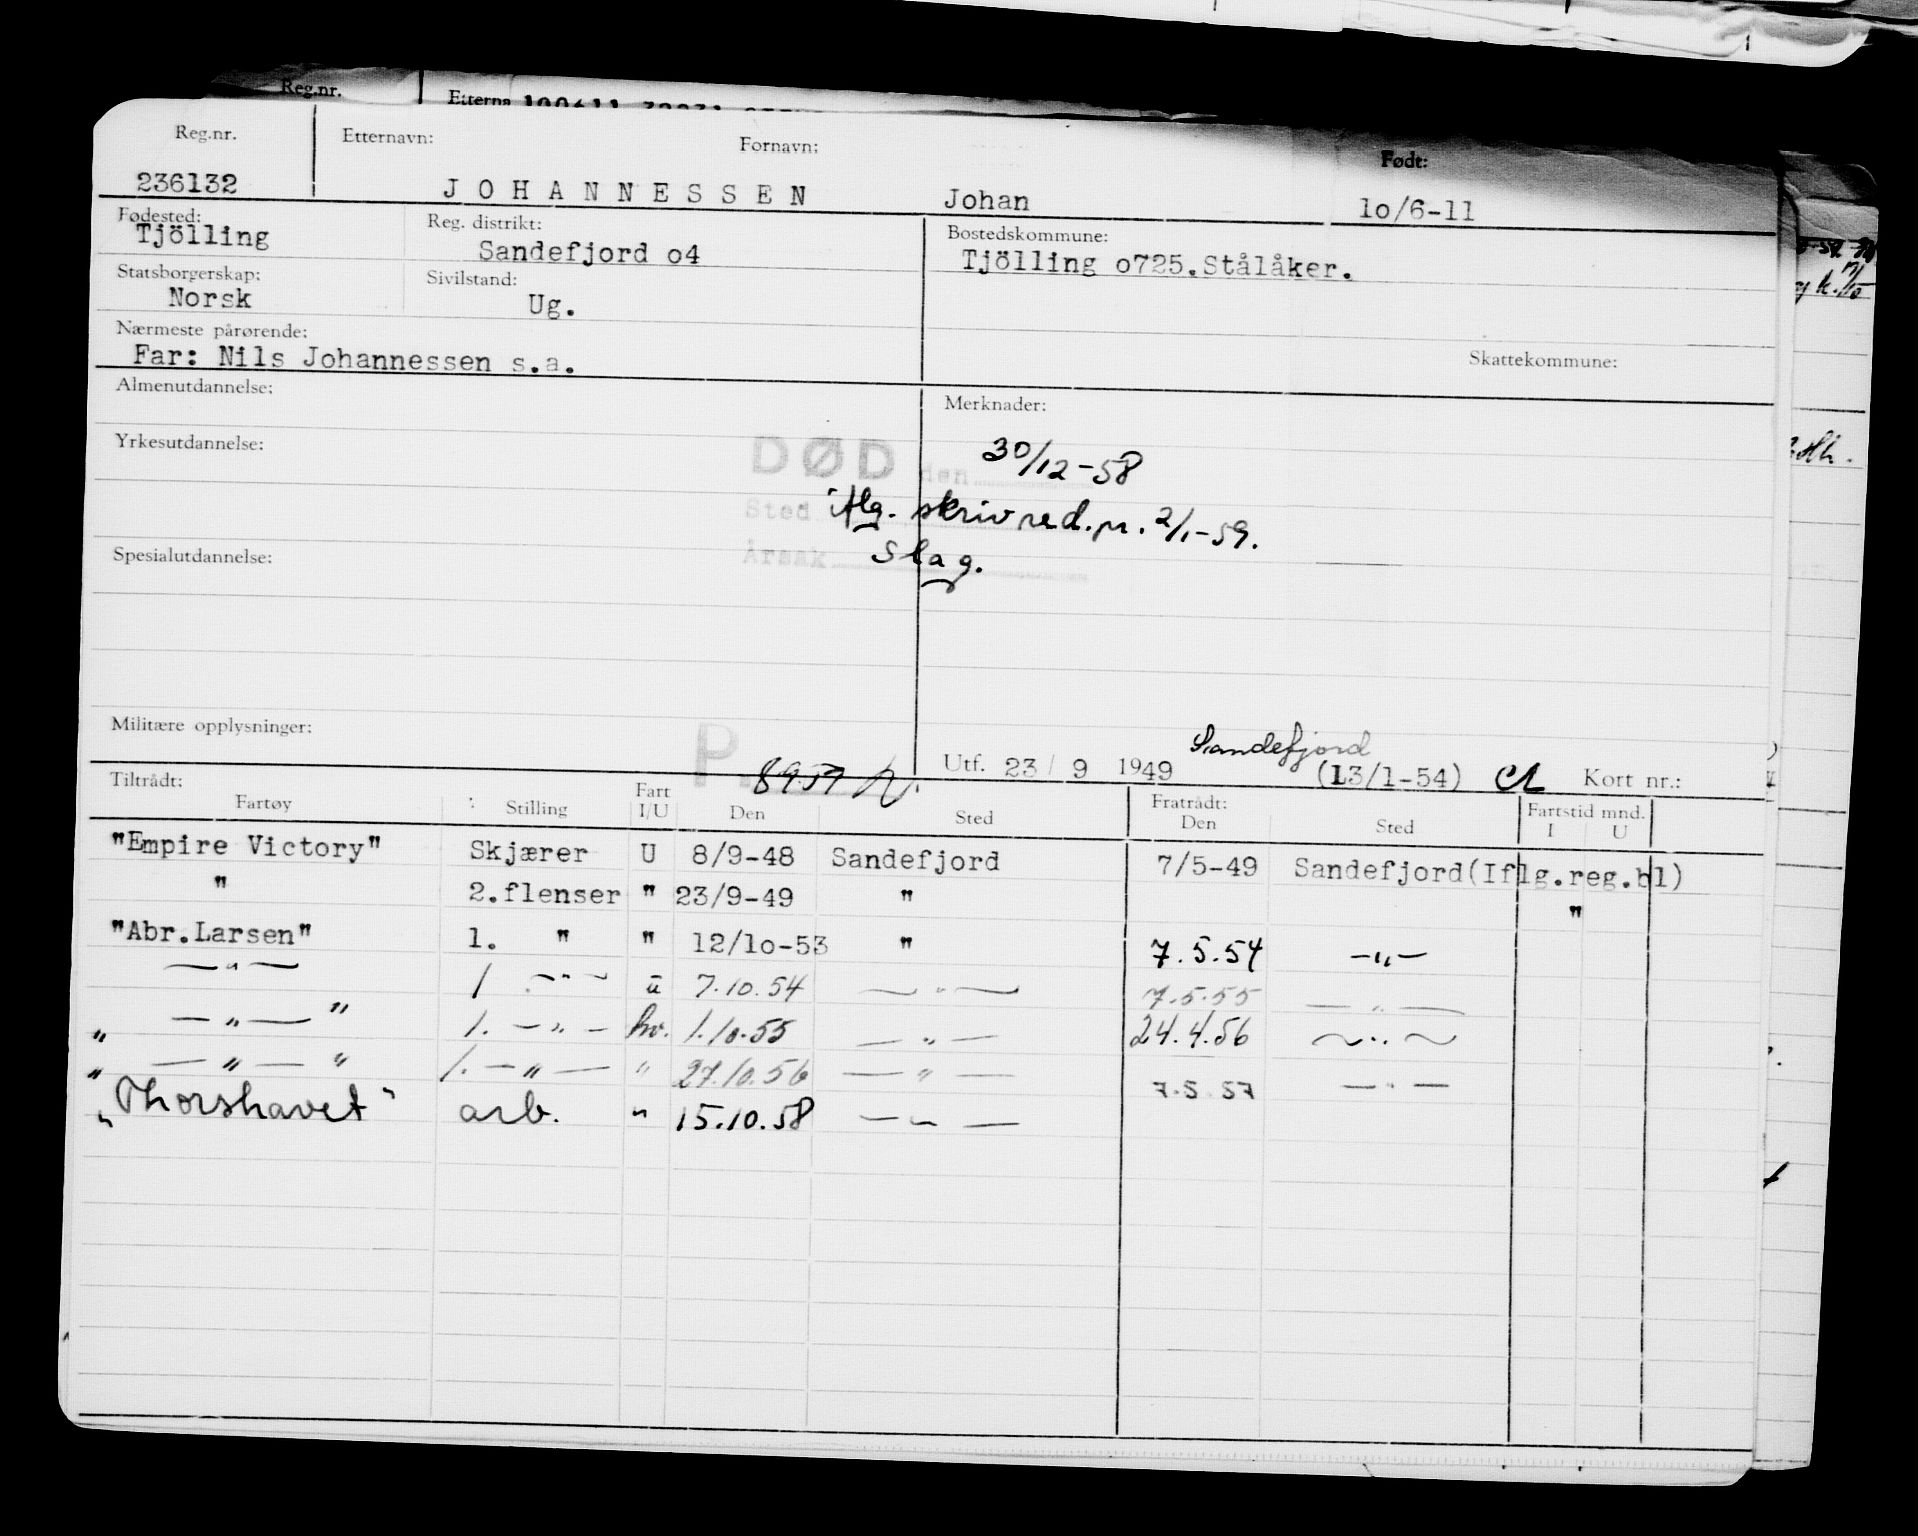 Reg.nr. Etterna
Reg.nr. Etternavn: Fornavn: Født:
236132 JOHANNESSEN Johan lo/6-11
Fødested: Reg. distrikt: Bostedskommune:
Tjölling Sandefjord o4 Tjölling o725.Stålåker.
Statsborgerskap: Sivilstand:
Norsk Ug.
Nærmeste pårørende: Skattekommune:
Far: Nils Johannessen s.a.
Almenutdannelse: Merknader:
Yrkesutdannelse: DØD den 30/12-58
Sted iflg. skriv red. pr. 2/1-59.
Spesialutdannelse: Årsak Slag.
Militære opplysninger: P. Utf. 23/ 9 1949 Sandefjord (L3/1-54) Kort nr.:
Tiltrådt: Fratrådt: Fartstid mnd.
Fartøy Stilling Fart I/U Den Sted Den Sted I U
"Empire Victory" Skjærer U 8/9-48 Sandefjord 7/5-49 Sandefjord(Iflg.reg.bl)
" 2.flenser " 23/9-49 " "
"Abr.Larsen" 1. " " 12/lo-53 " 7.5.54 —"—
—"— 1 —"— u 7.10.54 —"— 7.5.55 —"—
" —"— " 1. —"— hv. 1.10.55 —"— 24.4.56 —"—
" —"— " 1. —"— " 27.10.56 —"— 7.5.57 —"—
"Thorshavet" arb. " 15.10.58 —"—